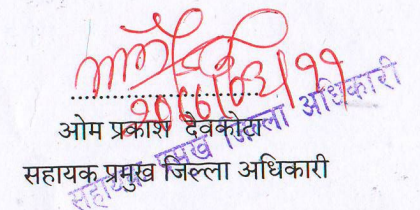 २०७७/०३/११
ओम प्रकाश देवकोटा
सहायक प्रमुख जिल्ला अधिकारी
सहायक प्रमुख जिल्ला अधिकारी